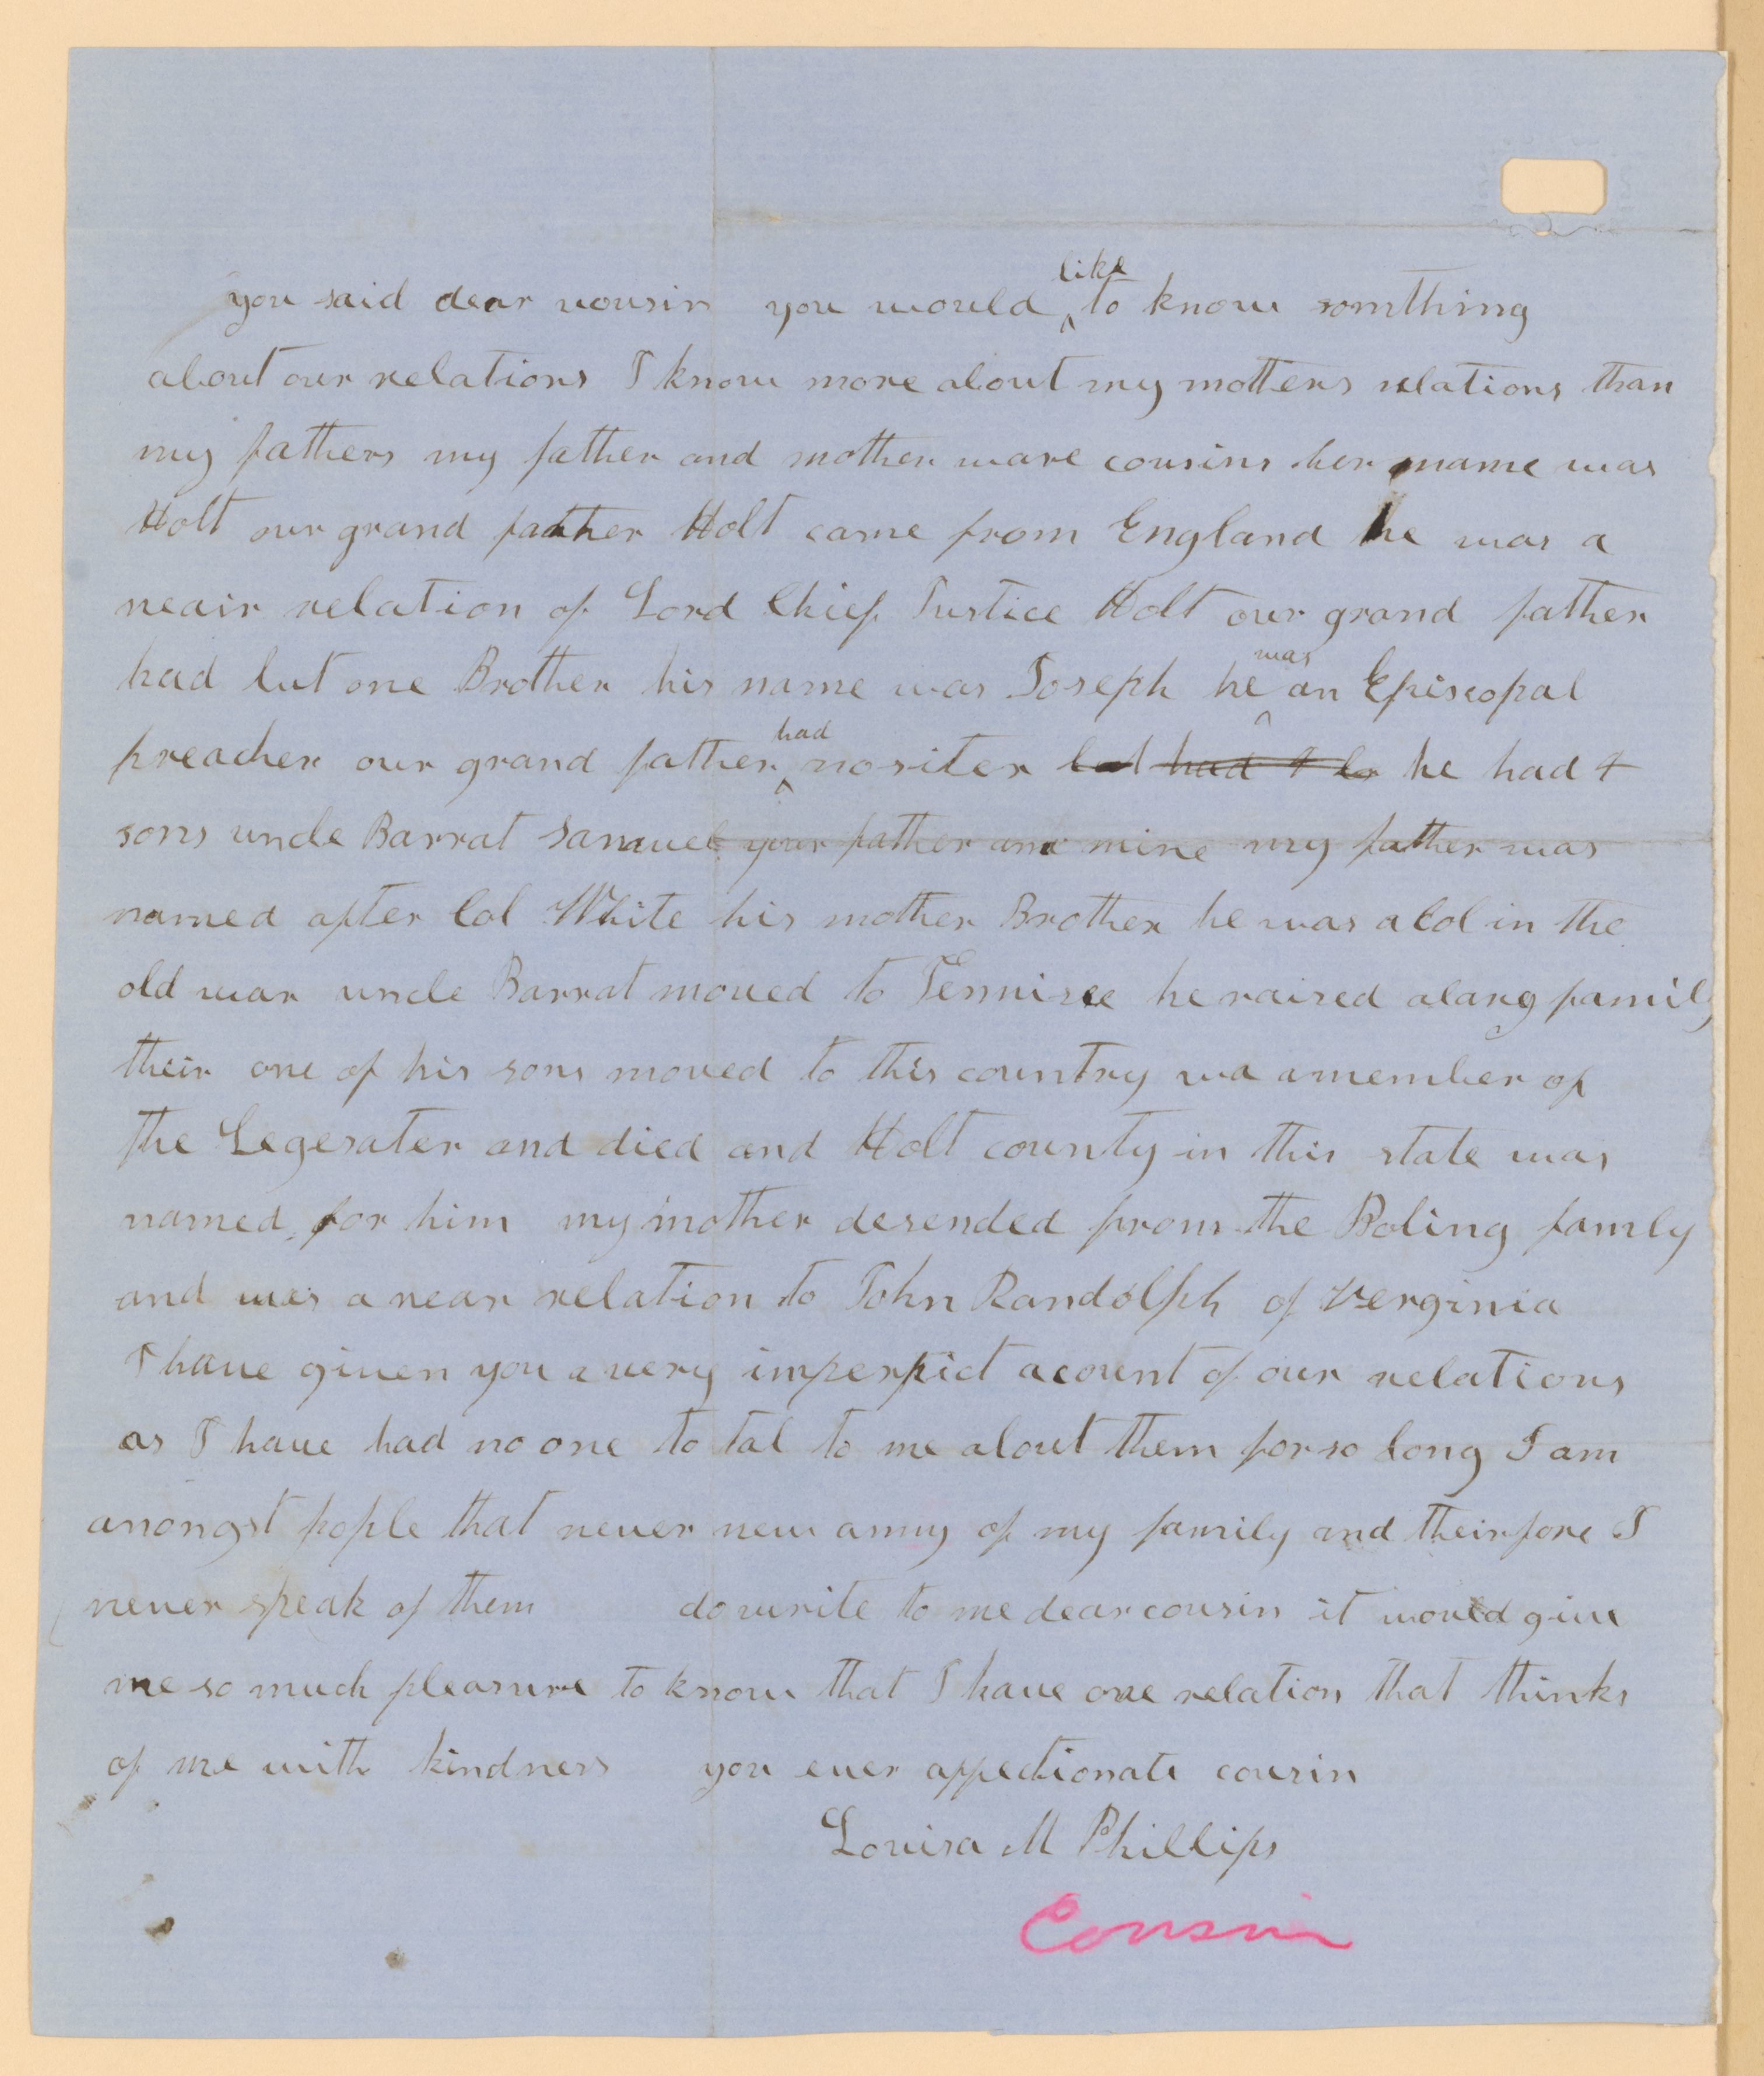 you said dear cousin you would like to know somthing
about our relations I know more about my mothers relations than
my fathers my father and mother ware cousins her name was
Holt our grand father Holt came from England he was a
neair relation of Lord Chief Justice Holt our grand father
had but one Brother his name was Joseph he was an Episcopal
preacher our grand father had no siter had 4 he had 4
sons uncle Barrat Samuel your father and mine my father was
named after Col White his mother Brother he was a Col in the
old war uncle Barrat moved to Tennisee he raised a larg family
their one of his sons moved to this country wa a member of
the Legesater and died and Holt county in this state was
named for him my mother desended from the Boling family
and was a near relation to John Randolph of Verginia
I have given you a very imperfict acount of our relations
as I have had no one to tal to me about them for so long I am
amongst pople that never new anny of my family and theirfore I
never speak of them do write to me dear cousin it would give
me so much pleasure to know that I have one relation that thinks
of me with kindness you ever affectionate cousin
Louisa M Phillips
Cousin